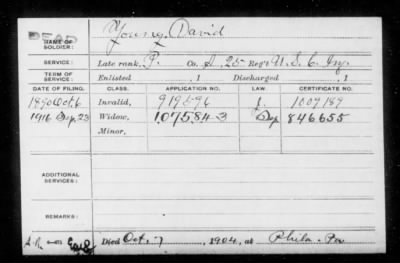 DEAD
NAME OF SOLDIER: Young, David
SERVICE: Late rank, P. Co. A, 25 Reg't U.S.C. Inf.
TERM OF SERVICE: Enlisted , 1 Discharged , 1
DATE OF FILING. CLASS. APPLICATION NO. LAW. CERTIFICATE NO.
1890 Oct. 6 Invalid, 919596 1007189
1916 Sep. 23 Widow, 1075843 Sep 846655
Minor,
ADDITIONAL SERVICES:
REMARKS:
Died Oct. 7, 1904, at Phila. Pa